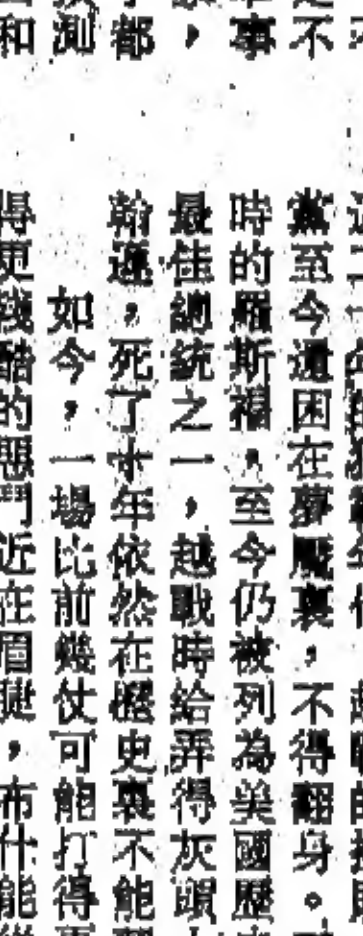 不
事
，
都
測
和
黨至今還困在夢魘裏，不得翻身。
時的羅斯福，至今仍被列為美國歷
最佳總統之一，越戰時給弄得灰頭
翰遜，死了廿年依然在歷史裏不能
如今，一場比前幾仗可能打得
得更殘酷的惡鬥近在眉睫，布什能